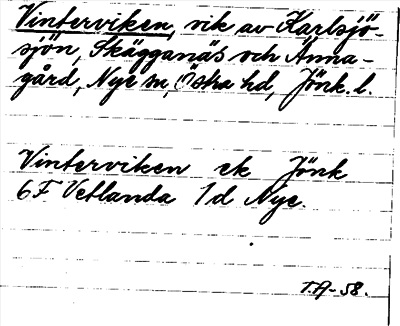 Vinterviken, vik av Karlsjö-
sjön, Skägganäs och Anna-
gård, Nye sn, Östra hd, Jönk. l.
Vinterviken ek Jönk
6F Vetlanda 1d Nye.
T.A-58.